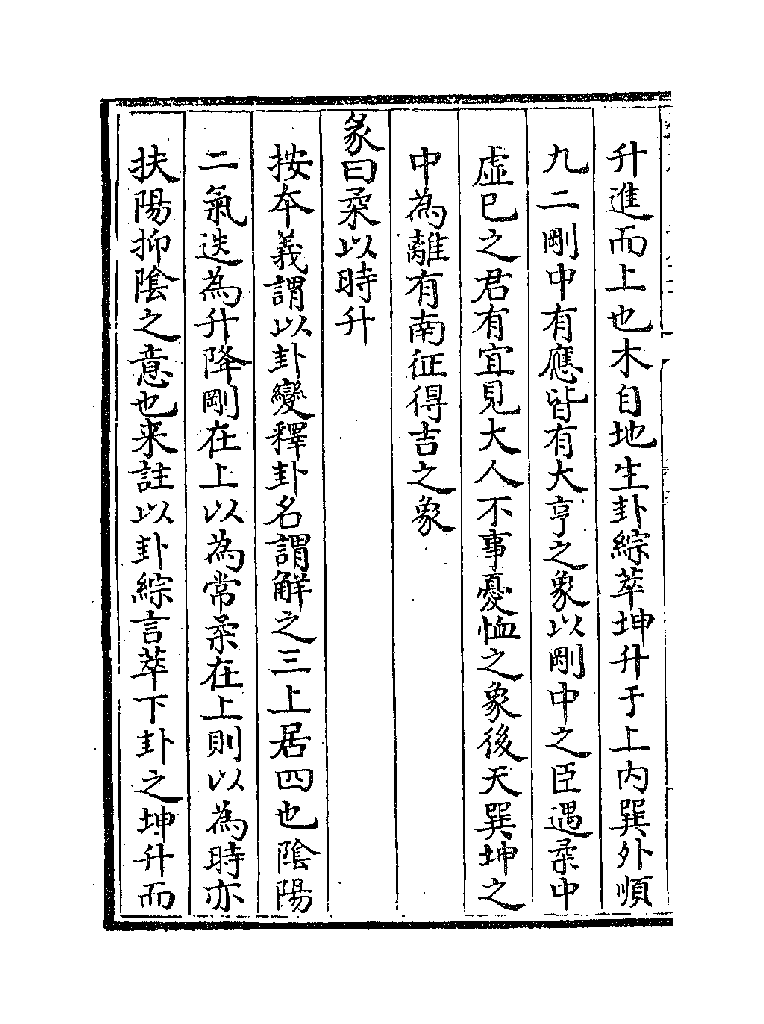 升進而上也木自地生卦綜萃坤升于上内巽外順
九二剛中有應皆有大亨之象以剛中之臣遇柔中
虛已之君有宜見大人不事憂恤之象後天巽坤之
中為離有南征得吉之象
彖曰柔以時升
按本義謂以卦變釋卦名謂解之三上居四也陰陽
二氣迭為升降剛在上以為常柔在上則以為時亦
扶陽抑陰之意也来註以卦綜言萃下卦之坤升而